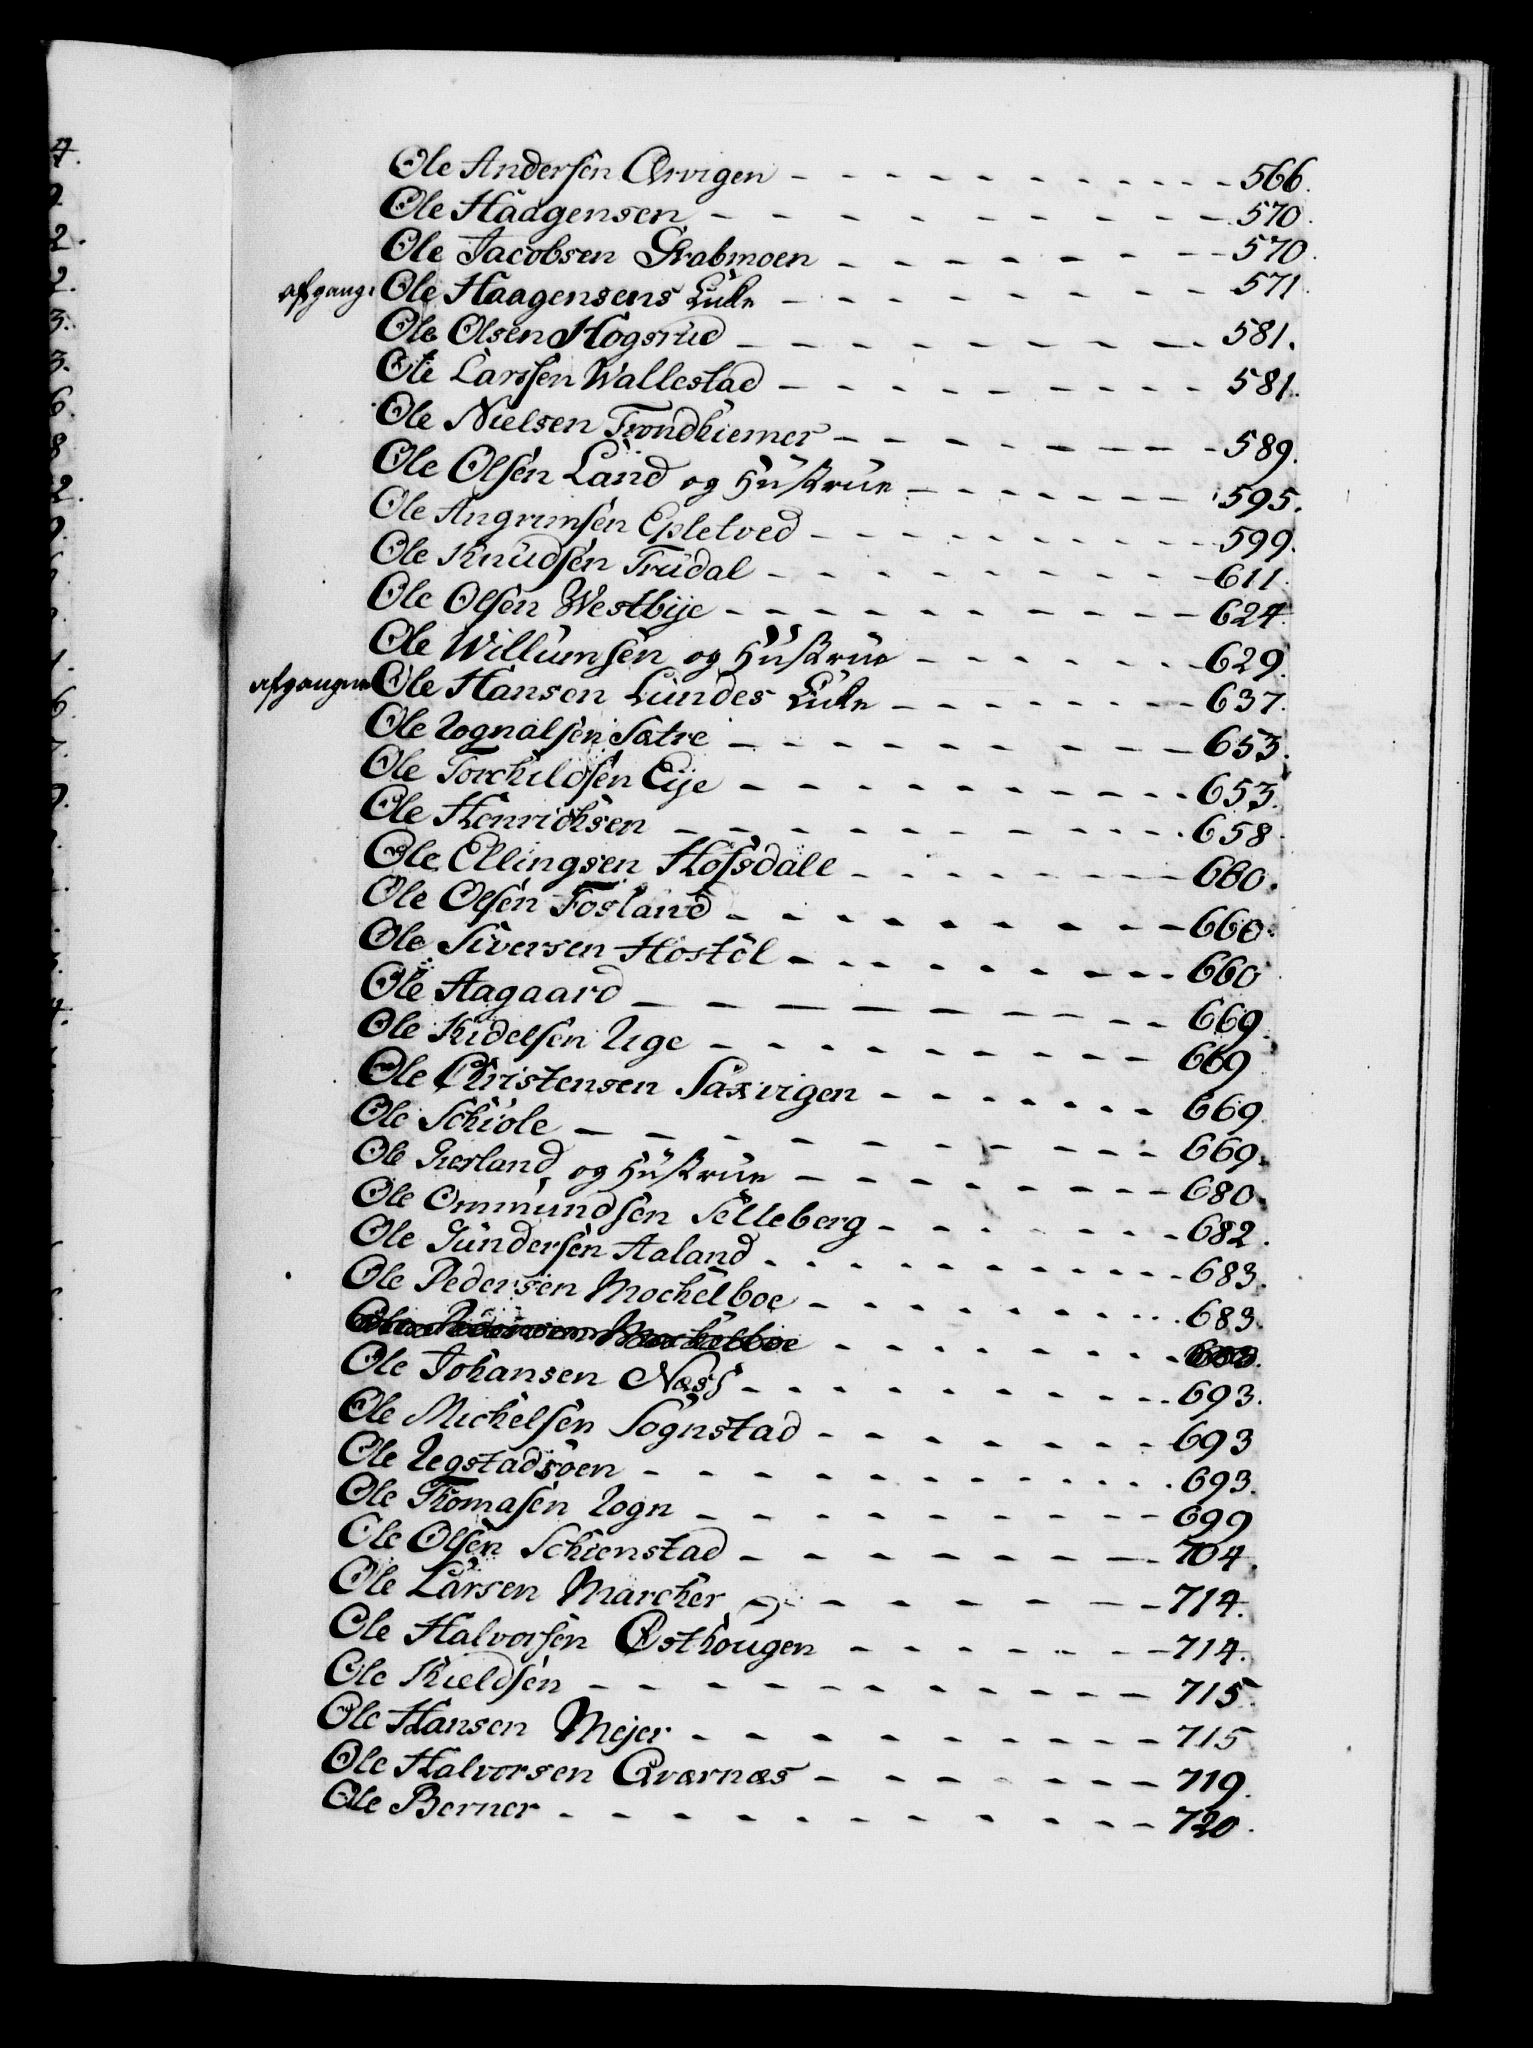 Ole Andersen Ørvigen - - - 566.
Ole Haagensen - - - 570.
Ole Jacobsen Grabmoen - - - 570.
afgang: Ole Haagensens Enke - - - 571.
Ole Olsen Hogsrud - - - 581.
Ole Larssen Wallestad - - - 581.
Ole Nielsen Trondhiemer - - - 589.
Ole Olsen Land og Hustrue - - - 595.
Ole Angrimsen Epletved - - - 599.
Ole Knudsen Trudal - - - 611.
Ole Olsen Westbye - - - 624.
Ole Willumsen og Hustrue - - - 629.
afgangen Ole Hansen Lundes Enke - - - 637.
Ole Rognalsen Sætre - - - 653.
Ole Torchildsen Eije - - - 653.
Ole Henrichsen - - - 658.
Ole Ellingsen Hofsdale - - - 660.
Ole Olsen Fosland - - - 660.
Ole Siversen Hostøl - - - 660
Ole Aagaard - - - 669.
Ole Kidelsen Uge - - - 669
Ole Christensen Saxvigen - - - 669.
Ole Schiøle - - - 669.
Ole Gierland og Hustrue - - - 680.
Ole Ommundsen Selleberg - - - 682.
Ole Gundersen Aaland - - - 683.
Ole Pedersen Mochelboe - - - 683.
Ole Pedersen Mochelboe - - - 683.
Ole Johansen Næss - - - 693.
Ole Michelsen Sognstad - - - 693
Ole Regstadsøen - - - 693.
Ole Thomasen Rogn - - - 699
Ole Olsen Schienstad - - - 704.
Ole Larsen Marcher - - - 714.
Ole Halvorsen Østhougen - - - 714.
Ole Kieldsen - - - 715.
Ole Hansen Mejer - - - 715
Ole Halvorsen Qværnæs - - - 719.
Ole Berner - - - 720.